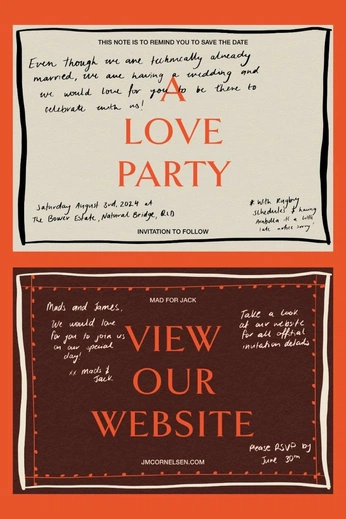 THIS NOTE IS TO REMIND YOU TO SAVE THE DATE
Even though we are technically already
married, we are having a wedding and
we would love for you to be there to
celebrate with us!
A
LOVE
PARTY
Saturday August 3rd, 2024 at
The Bower Estate, Natural Bridge, QLD
* With Rugby
schedules & having
Arabella it a little
late notice sorry!
INVITATION TO FOLLOW
MAD FOR JACK
Mads and James,
We would love
for you to join us
on our special
day!
xx Mads &
Jack.
Take a look
at our website
for all official
invitation details
VIEW
OUR
WEBSITE
Please RSVP by
June 30th
JMCORNELSEN.COM